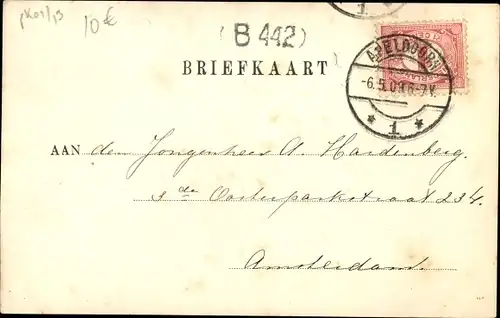 10 €
(B 442)
1
BRIEFKAART
APELDOORN
-6.5.09.6-7V.
* 1 *
AAN den Jongenheer A. Hardenberg.
3de Oosterparkstraat 234.
Amsterdam.